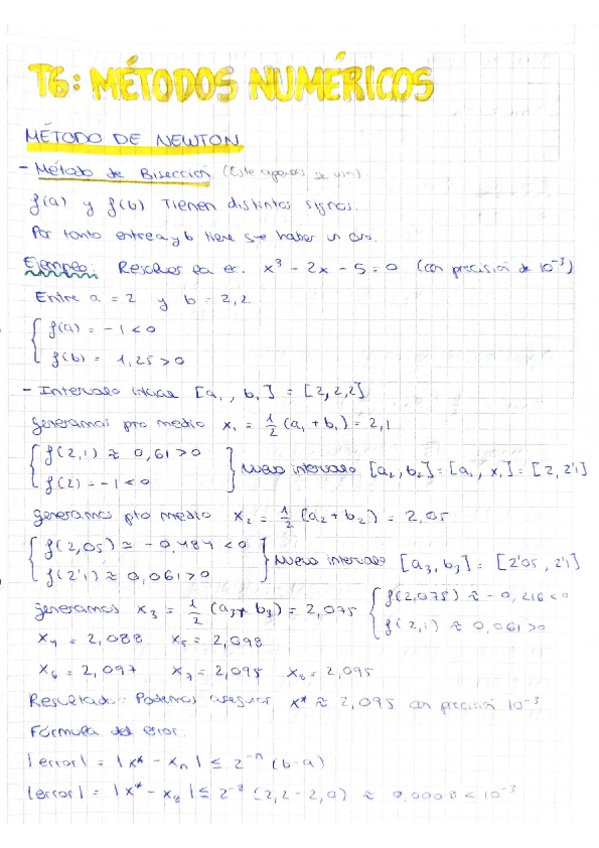 T6: MÉTODOS NUMÉRICOS
MÉTODO DE NEWTON
- Método de Bisección (Este apenas se usa)
f(a) y f(b) Tienen distintos signos.
Por tanto entre a y b tiene que haber un
Ejemplo: Resolver la ec. x³ - 2x - 5 = 0 (con precisión de 10⁻³)
Entre a = 2 y b = 2,2
{ f(a) = -1 < 0
f(b) = 1,25 > 0
- Intervalo inicial [a₁, b₁] = [2, 2,2]
generamos pto medio x₁ = 1/2 (a₁ + b₁) = 2,1
{ f(2,1) ≈ 0,61 > 0
f(2) = -1 < 0 } Nuevo intervalo [a₂, b₂] = [a₁, x₁] = [2, 2'1]
generamos pto medio x₂ = 1/2 (a₂ + b₂) = 2,05
{ f(2,05) ≈ -0,484 < 0
f(2'1) ≈ 0,061 > 0 } Nuevo intervalo [a₃, b₃] = [2'05, 2'1]
generamos x₃ = 1/2 (a₃ + b₃) = 2,075 { f(2,075) ≈ -0,216 < 0
f(2,1) ≈ 0,061 > 0
x₄ = 2,088 x₅ = 2,098
x₆ = 2,097 x₇ = 2,095 x₈ = 2,095
Resultado: Podemos asegurar x* ≈ 2,095 con precisión 10⁻³
Fórmula del error.
|error| = |x* - xₙ| ≤ 2⁻ⁿ (b-a)
|error| = |x* - x₈| ≤ 2⁻⁸ (2,2 - 2,0) ≈ 0,0008 < 10⁻³